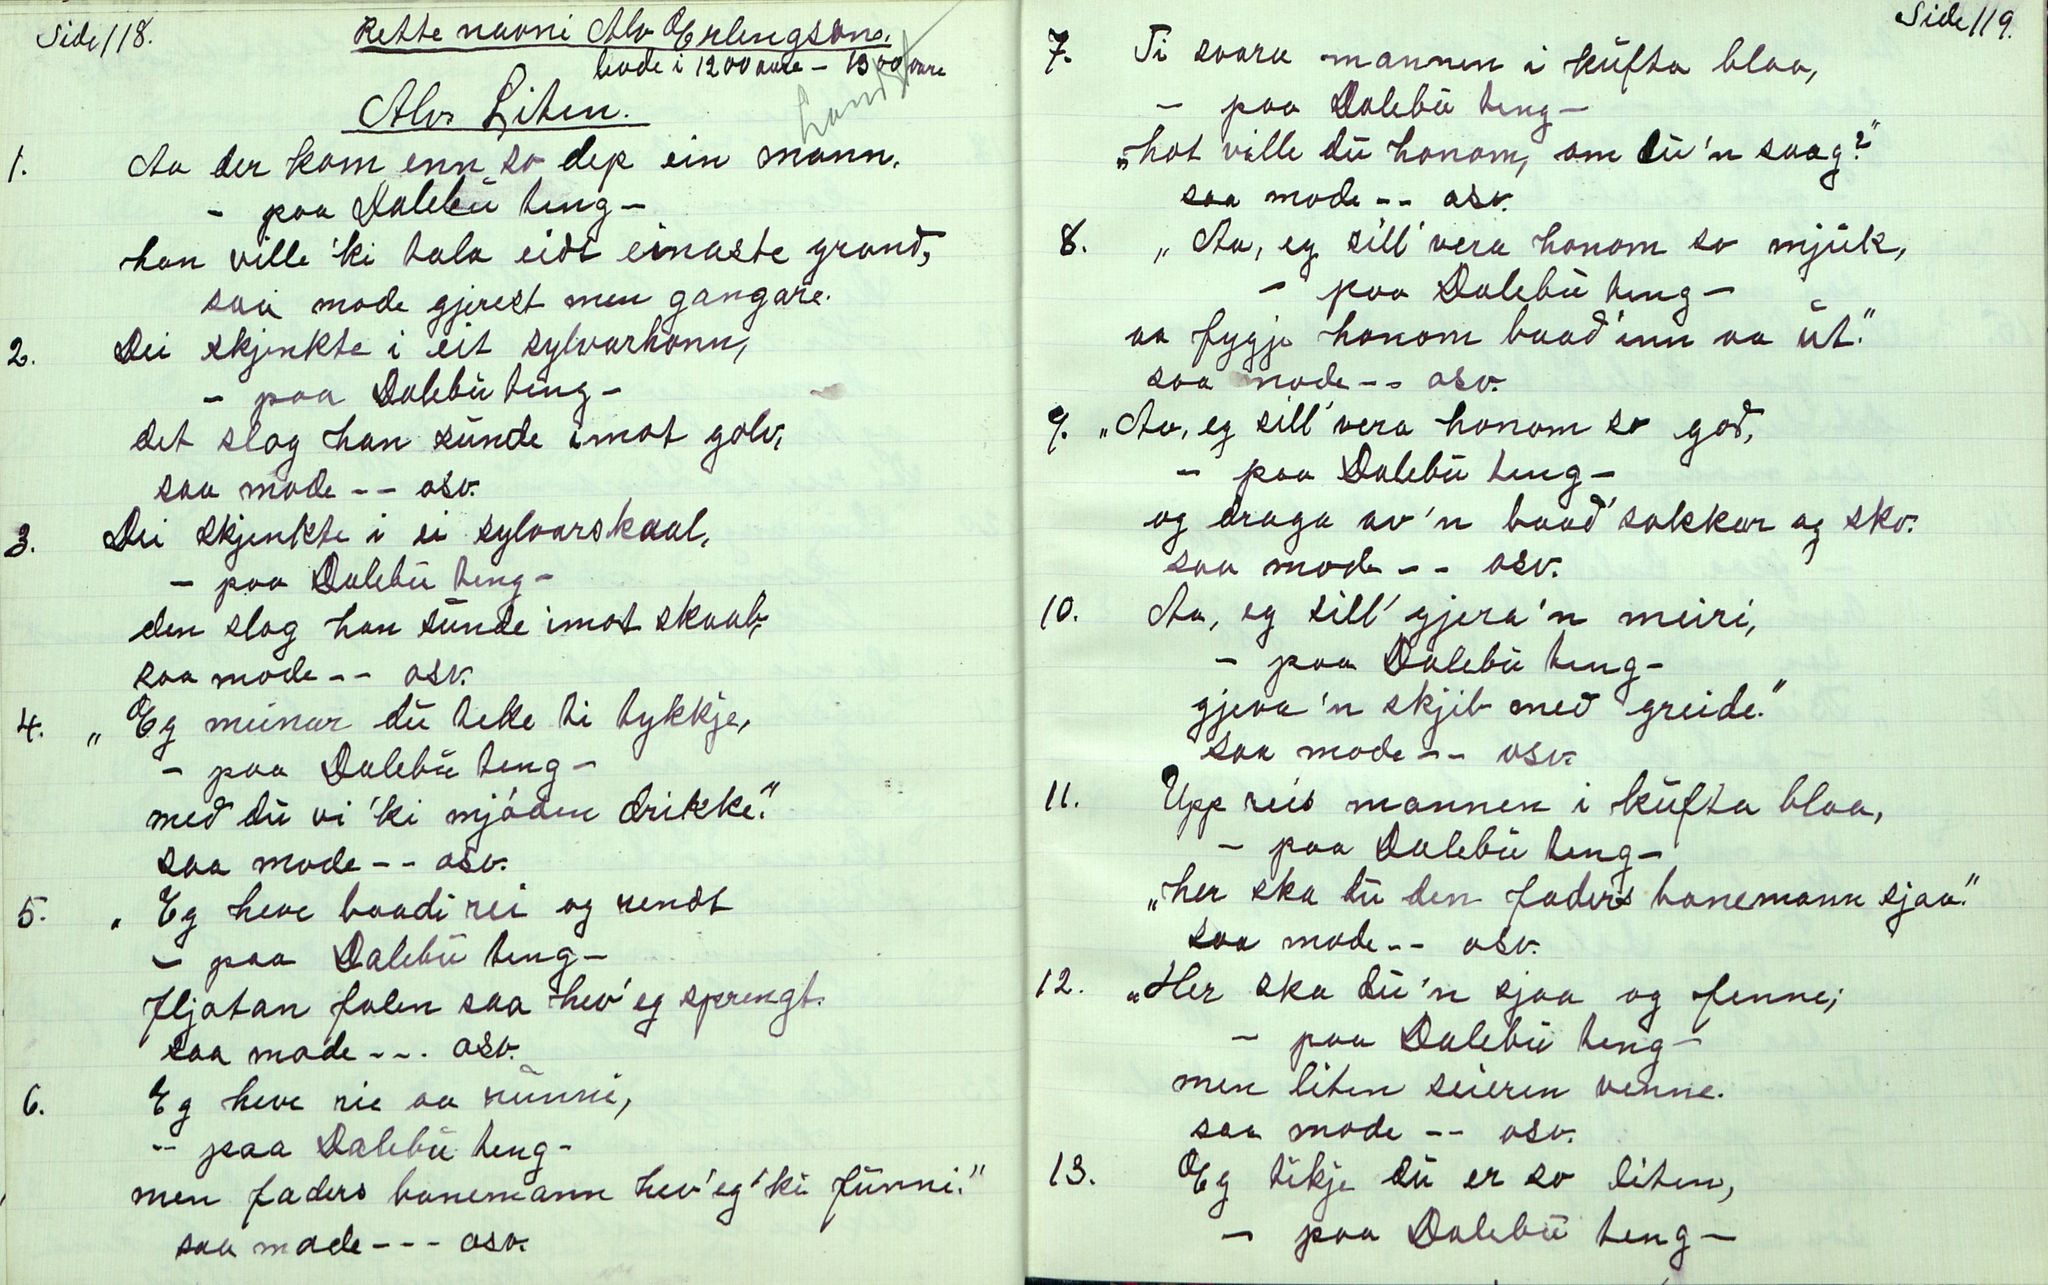 Side 118.
Rette navni Alv Erlengsson.
levde i 1200 aare - 1300 aare
Landst
Alv Liten.
1. Aa der kom enn so dep ein mann.
- paa Dalebü teng -
han ville 'ki tala eidt einaste grand,
saa mode gjerest men gangare.
2. Dei skjenkte i eit sylvarhonn,
- paa Dalebü teng -
det slog han sünde imot golv,
saa mode -- osv.
3. Dei skjenkte i ei sylvarskaal,
- paa Dalebü teng -
den slog han sünde imot skaab,
saa mode -- osv.
4. „Eg meinar dü teke ti tykkje,
- paa Dalebü teng -
med dü vi 'ki mjöden drikke."
saa mode -- osv.
5. „Eg heve baadi rei og rendt
- paa Dalebü teng -
fljotan folen saa hev' eg sprengt.
saa mode --. osv.
6. Eg heve rie aa rünni,
- paa Dalebü teng -
men faders banemann hev' eg 'ki fünni."
saa mode --- osv.
Side 119.
7. Ti svara mannen i küfta blaa,
- paa Dalebü teng -
„hot ville dü honom, om dü 'n saag?"
saa mode -- osv.
8. „Aa, eg sill' vera honom so mjük,
- paa Dalebü teng -
aa fygje honom baad' inn aa üt."
saa mode -- osv.
9. „Aa, eg sill' vera honom so god,
- paa Dalebü teng -
og draga av 'n baad' sokkar og sko.
saa mode -- osv.
10. Aa, eg sill' gjera 'n meiri,
- paa Dalebü teng -
gjeva 'n skjib med greide."
saa mode -- osv.
11. Upp reis mannen i küfta blaa,
- paa Dalebü teng -
„her ska dü den faders banemann sjaa."
saa mode -- osv.
12. „Her ska dü 'n sjaa og fenne,
- paa Dalebü teng -
men liten seieren venne.
saa mode -- osv.
13. Eg tikje dü er so liten,
- paa Dalebü teng -